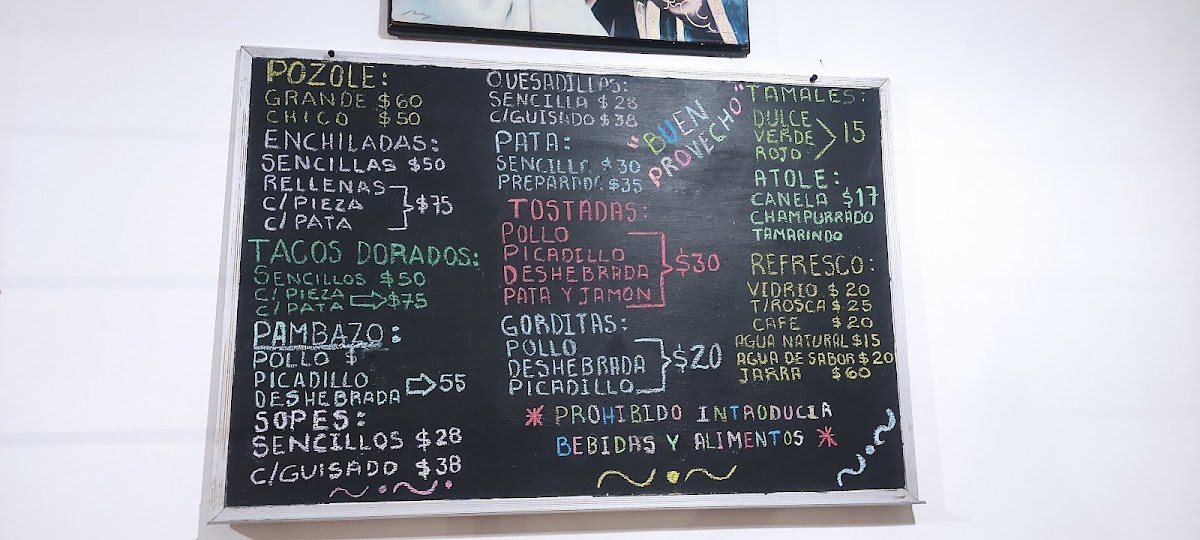 POZOLE:
GRANDE $60
CHICO $50
ENCHILADAS:
SENCILLAS $50
RELLENAS
C/PIEZA
C/PATA
$75
TACOS DORADOS:
SENCILLOS $50
C/PIEZA
C/PATA
$75
PAMBAZO:
POLLO $
PICADILLO
DESHEBRADA
55
SOPES:
SENCILLOS $28
C/GUISADO $38
QUESADILLAS:
SENCILLA $28
C/GUISADO $38
PATA:
SENCILLA $30
PREPARADA $35
"BUEN
PROVECHO"
TOSTADAS:
POLLO
PICADILLO
DESHEBRADA
PATA Y JAMON
$30
GORDITAS:
POLLO
DESHEBRADA
PICADILLO
$20
* PROHIBIDO INTRODUCIR
BEBIDAS Y ALIMENTOS *
TAMALES:
DULCE
VERDE
ROJO
15
ATOLE:
CANELA $17
CHAMPURRADO
TAMARINDO
REFRESCO:
VIDRIO $20
T/ROSCA $25
CAFE $20
AGUA NATURAL $15
AGUA DE SABOR $20
JARRA $60